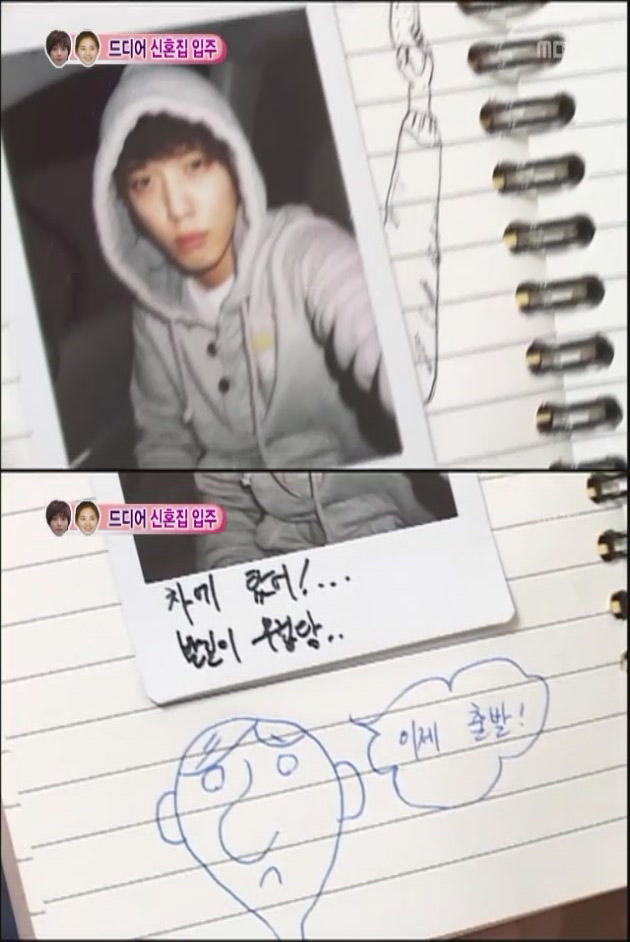 드디어 신혼집 입주
MBC
드디어 신혼집 입주
차에 탔어!...
발길이 무겁당..
이제 출발!